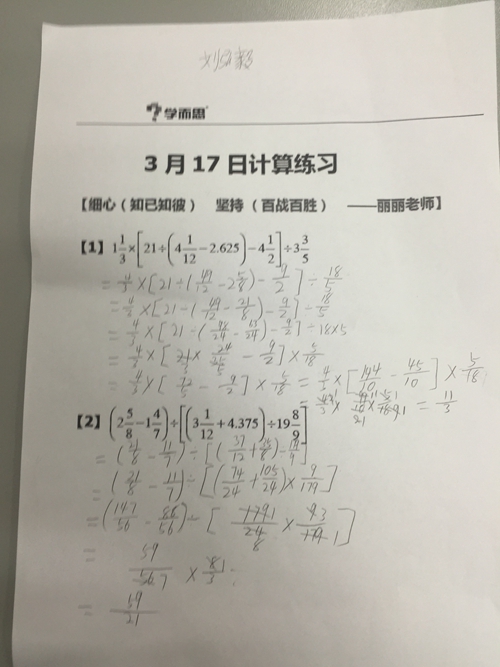 学而思
3月17日计算练习
【细心（知已知彼） 坚持（百战百胜） ——丽丽老师】
【1】1 1/3×[21÷(4 1/12－2.625)－4 1/2]÷3 3/5
= 4/3 ×[21÷(49/12 - 2 5/8) - 9/2]÷ 18/5
= 4/3 ×[21÷(49/12 - 21/8) - 9/2]÷ 18/5
= 4/3 ×[21÷(98/24 - 63/24) - 9/2]÷18×5
= 4/3 ×[21× 24/35 - 9/2]× 5/18
= 4/3 ×[72/5 - 9/2]× 5/18 = 4/3 ×[144/10 - 45/10]× 5/18
= 11/3
【2】(2 5/8－1 4/7)÷[(3 1/12＋4.375)÷19 8/9]
= (21/8 - 11/7)÷[(37/12 +
(21/8 - 11/7)÷[(74/24 + 105/24)× 9/179]
=(147/56 - 88/56)÷[179/24 × 9/179]
= 59/56 × 8/3
= 59/21